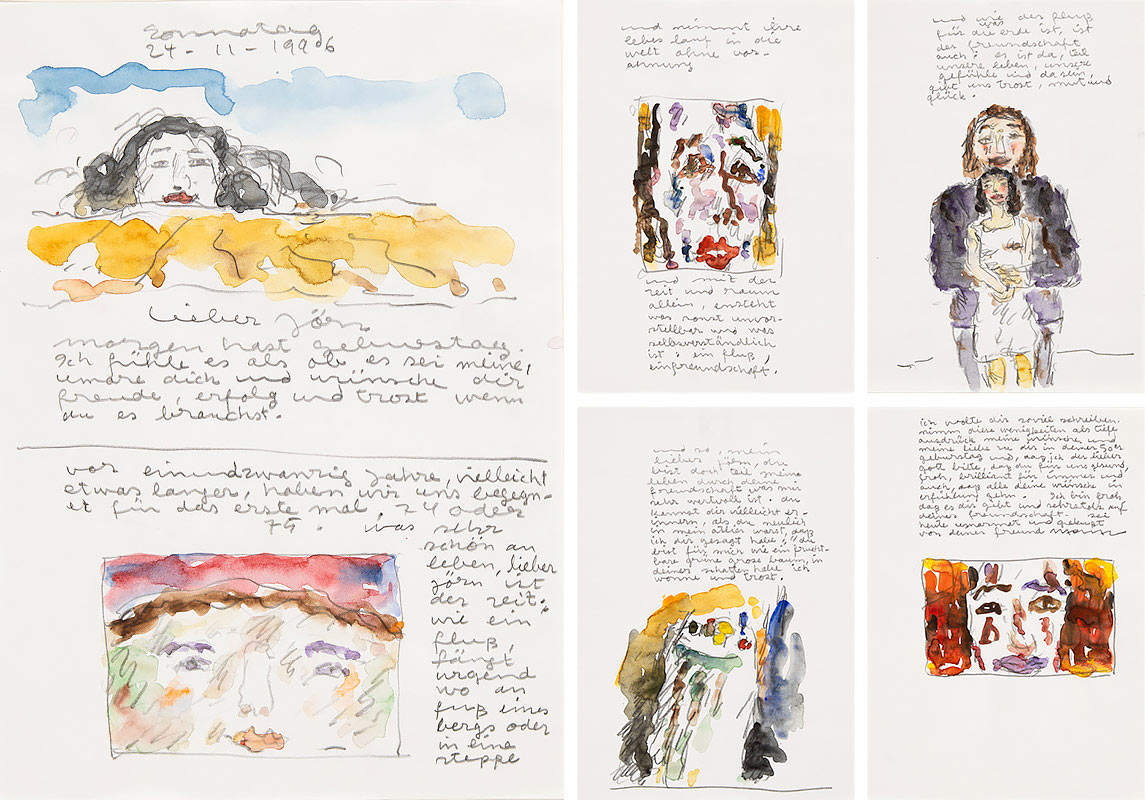 Sonnatag
24-11-1996
Lieber Jörn
morgen hast geburstag.
ich fühle es als ob es sei meine,
umare dich und wünsche dir
freude, erfolg und trost wenn
du es brauchst.
vor einundzwanzig jahre, vielleicht
etwas langer, haben wir uns begegn-
et für das erste mal. 24 oder
75. was sehr
schön an
leben, lieber
jörn ist
der zeit.
wie ein
fluß,
fängt
urgend
wo an
fuß eines
bergs oder
in eine
steppe
und nimmt ihre
lebes lauf in die
welt ohne vor-
ahnung
und mit der
zeit und raum
allein, ensteht
was sonst unvor-
stellbar und was
selbsverständlich
ist: ein fluß,
ein freundschaft.
und wie der fluß
was
für die erde ist, ist
der freundschaft
auch: es ist da, teil
unsere leben, unsere
gefühle und dasein,
gibt uns trost, mut und
glück.
und so, mein
lieber jörn, du
bist doch teil meine
leben durch deine
freundschaft was mir
sehr wertvoll ist. du
kannst dir vielleicht er-
innern, als du neulich
in mein atelier warst, daß
ich dir gesagt habe: "du
bist für mich wie ein frucht-
bare grüne grose baum, in
deines schatten habe ich
wonne und trost.
ich wollte dir soviel schreiben.
nimm diese wenigkeiten als tiefe
ausdrück meine wünsche und
meine liebe zu dir in deines 50er
geburstag und, daß ich der lieber
gott bitte, daß du für uns gesund,
froh, brilliant für immer und
auch, daß alle deine wünsche in
erfühlung gehn. ich bin froh
daß es dir gibt und
deines freundschaft. sei
heute umarmet und
von deines freund